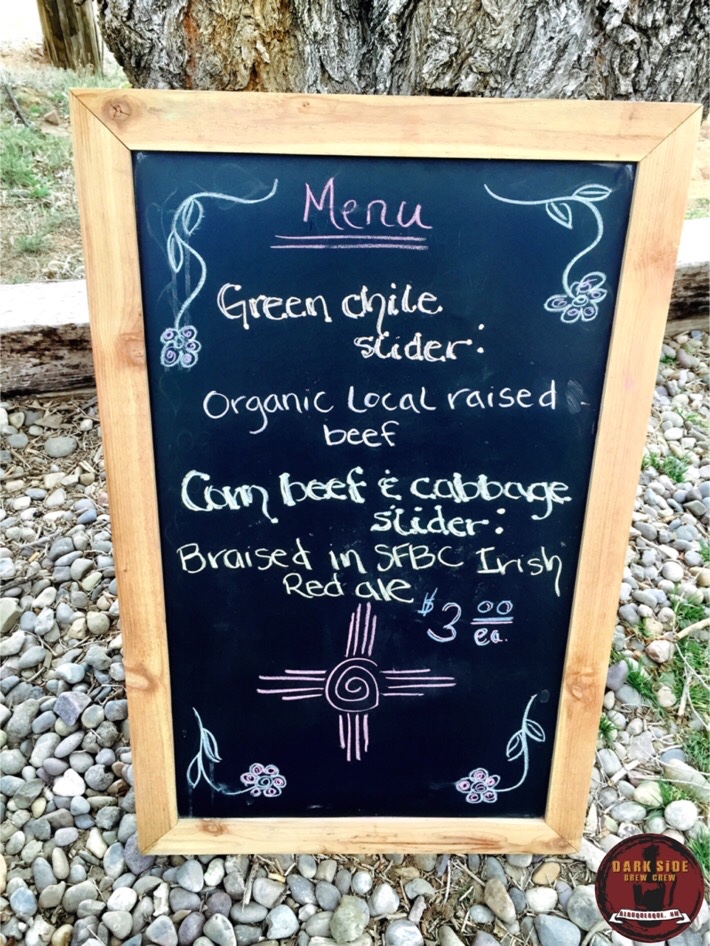 Menu
Green chile
slider:
Organic Local raised
beef
Corn beef & cabbage
slider:
Braised in SFBC Irish
Red ale
$3 00 ea.
DARK SiDE
BREW CREW
ALBUQUERQUE, NM